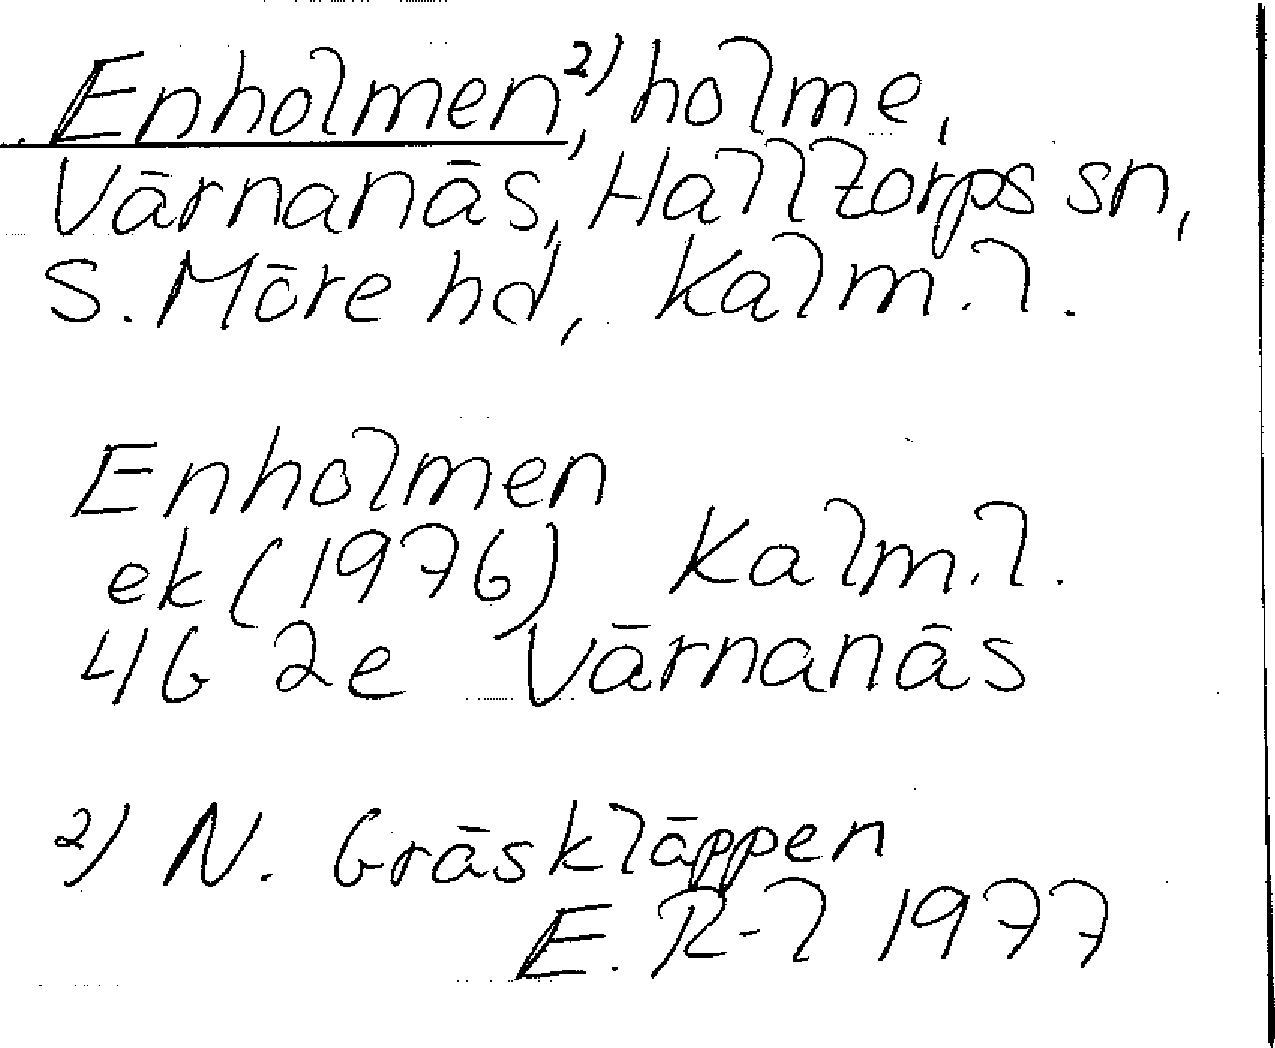 Enholmen,²⁾ holme,
Värnanäs, Halltorps sn,
S. Möre hd, Kalm. l.
Enholmen
ek (1976) Kalm. l.
4G 2e Värnanäs
²⁾ N. Gräskläppen
E. R-l 1977